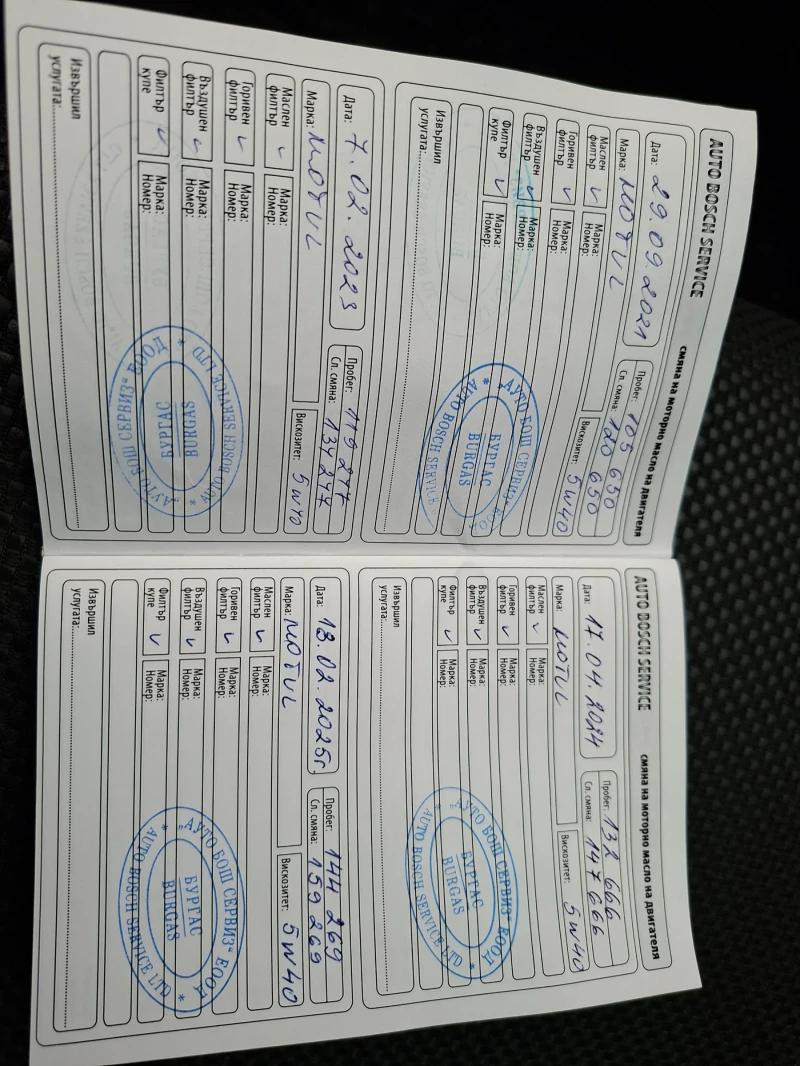 AUTO BOSCH SERVICE
смяна на моторно масло на двигателя
Дата: 29.09.2021
Пробег: 105 650
Сл. смяна: 120 650
Марка: MOTUL
Вискозитет: 5W40
Маслен филтър ✓ Марка:
Горивен филтър ✓ Марка: Номер:
Въздушен филтър ✓ Марка: Номер:
Филтър купе ✓ Марка: Номер:
Извършил услугата:
"АУТО БОШ СЕРВИЗ" ЕООД
БУРГАС
BURGAS
* AUTO BOSCH SERVICE
Дата: 7.02.2023
Пробег: 119 247
Сл. смяна: 134 247
Марка: MOTUL
Вискозитет: 5W40
Маслен филтър ✓ Марка:
Горивен филтър ✓ Марка: Номер:
Въздушен филтър ✓ Марка: Номер:
Филтър купе ✓ Марка: Номер:
Извършил услугата:
"АУТО БОШ СЕРВИЗ" ЕООД
БУРГАС
BURGAS
* AUTO BOSCH SERVICE LTD *
AUTO BOSCH SERVICE
смяна на моторно масло на двигателя
Дата: 17.04.2024
Пробег: 132 666
Сл. смяна: 147 666
Марка: MOTUL
Вискозитет: 5W40
Маслен филтър ✓ Марка:
Горивен филтър ✓ Марка: Номер:
Въздушен филтър ✓ Марка: Номер:
Филтър купе ✓ Марка: Номер:
Извършил услугата:
"АУТО БОШ СЕРВИЗ" ЕООД
БУРГАС
BURGAS
* AUTO BOSCH SERVICE LTD *
Дата: 18.02.2025г.
Пробег: 144 269
Сл. смяна: 159 269
Марка: MOTUL
Вискозитет: 5W40
Маслен филтър ✓ Марка:
Горивен филтър ✓ Марка: Номер:
Въздушен филтър ✓ Марка: Номер:
Филтър купе ✓ Марка: Номер:
Извършил услугата:
"АУТО БОШ СЕРВИЗ" ЕООД
БУРГАС
BURGAS
* AUTO BOSCH SERVICE LTD *